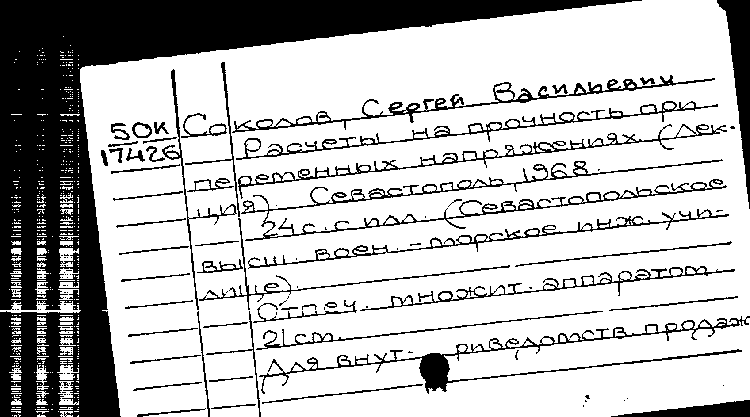 50К Соколов, Сергей Васильевич
17426 Расчеты на прочность при
переменных напряжениях. (Лек-
ция). Севастополь, 1968.
24 с. с илл. (Севастопольское
высш. воен.-морское инж. учи-
лище).
Отпеч. множит. аппаратом
21 см.
Для внут- риведомств. продаж